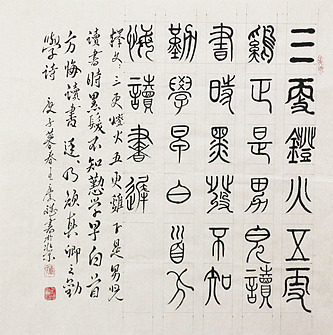 三更鐙火五更
鷄正是男兒讀
書時黑髮不知
勤學早白首方
悔讀書遲
釋文 三更燈火五更雞正是男兒
讀書時黑髮不知勤學早白首
方悔讀書遲 乃顏真卿之勸
學詩 庚子暮春王慶書於北京